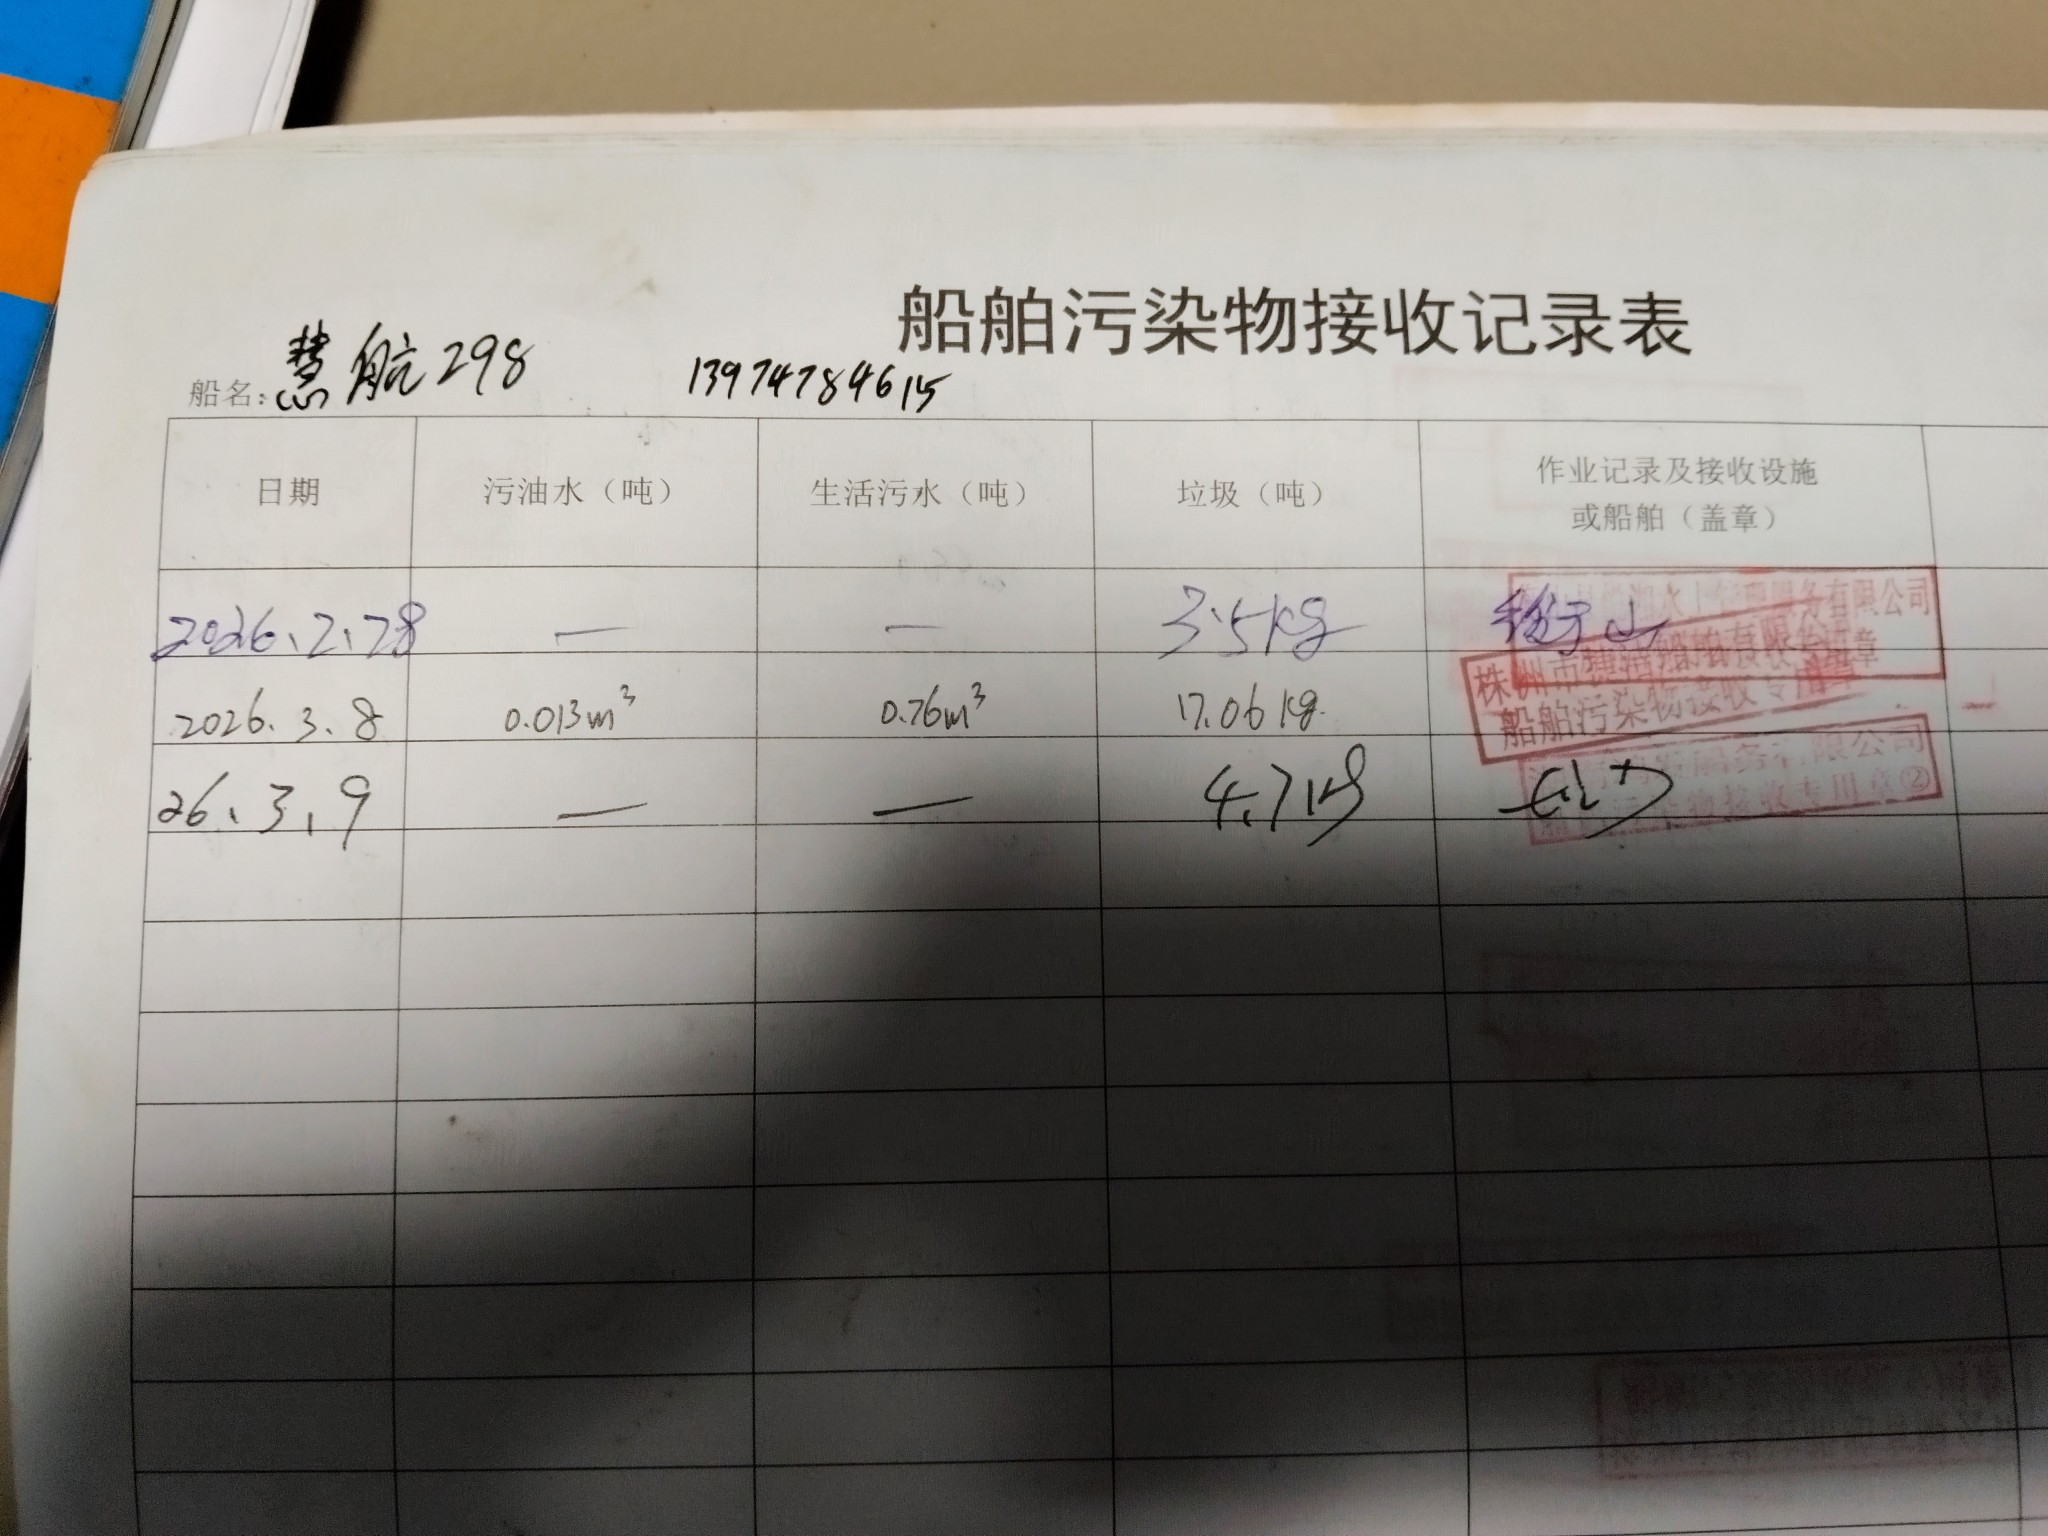 船舶污染物接收记录表
船名: 慧航298 13974784615
日期 污油水（吨） 生活污水（吨） 垃圾（吨） 作业记录及接收设施
或船舶（盖章）
2026.2.28 — — 3.5kg
服务有限公司
2026.3.8 0.013m³ 0.76m³ 17.06kg
株洲市 船舶有限公司
船舶污染物接收专用章
26.3.9 — — 4.7kg
服务有限公司
污染物接收专用章②